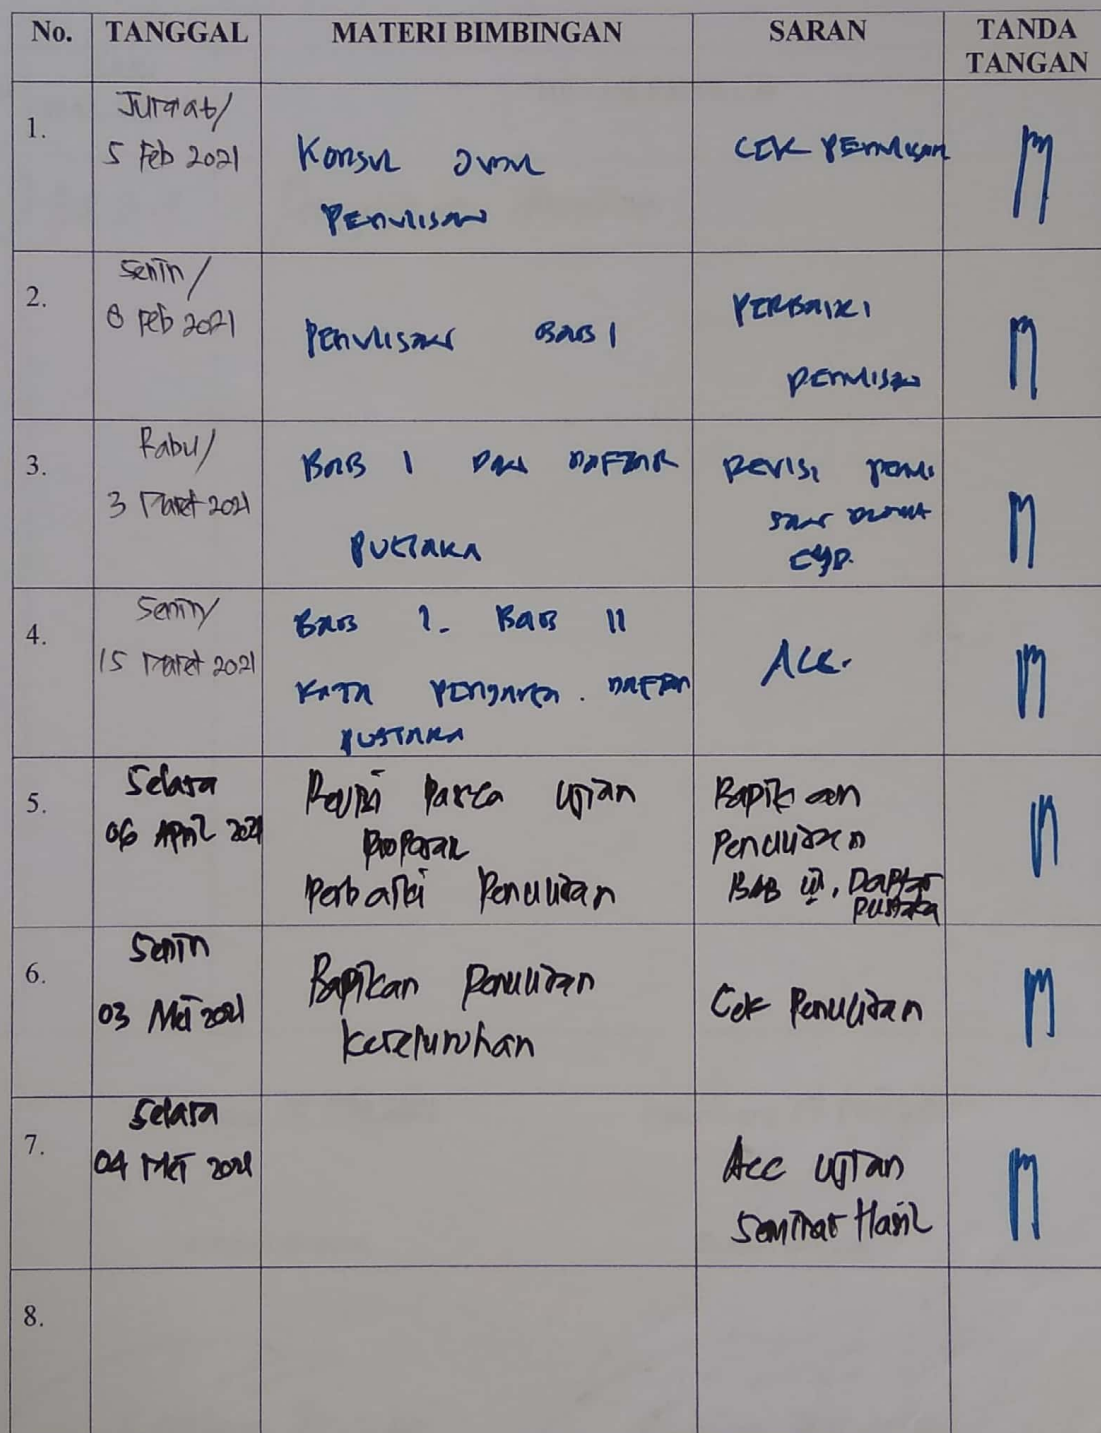 No. TANGGAL MATERI BIMBINGAN SARAN TANDA TANGAN
1.
Jumat/
5 Feb 2021
Konsul Judul
Penulisan
CEK PENULISAN
2.
Senin/
8 Feb 2021
PENULISAN BAB I
PERBAIKI
PENULISAN
3.
Rabu/
3 Maret 2021
BAB I DAN DAFTAR
PUSTAKA
REVISI PENULI
SAN
EYD.
4.
Senin/
15 Maret 2021
BAB I. BAB II
KATA PENGANTAR. DAFTAR
PUSTAKA
ACC.
5.
Selasa
06 April 2021
Revisi Pasca Ujian
Proposal
Perbaiki Penulisan
Rapikan
Penulisan
BAB III, Daftar
Pustaka
6.
Senin
03 Mei 2021
Rapikan Penulisan
keseluruhan
Cek Penulisan
7.
Selasa
04 Mei 2021
Acc Ujian
Seminar Hasil
8.